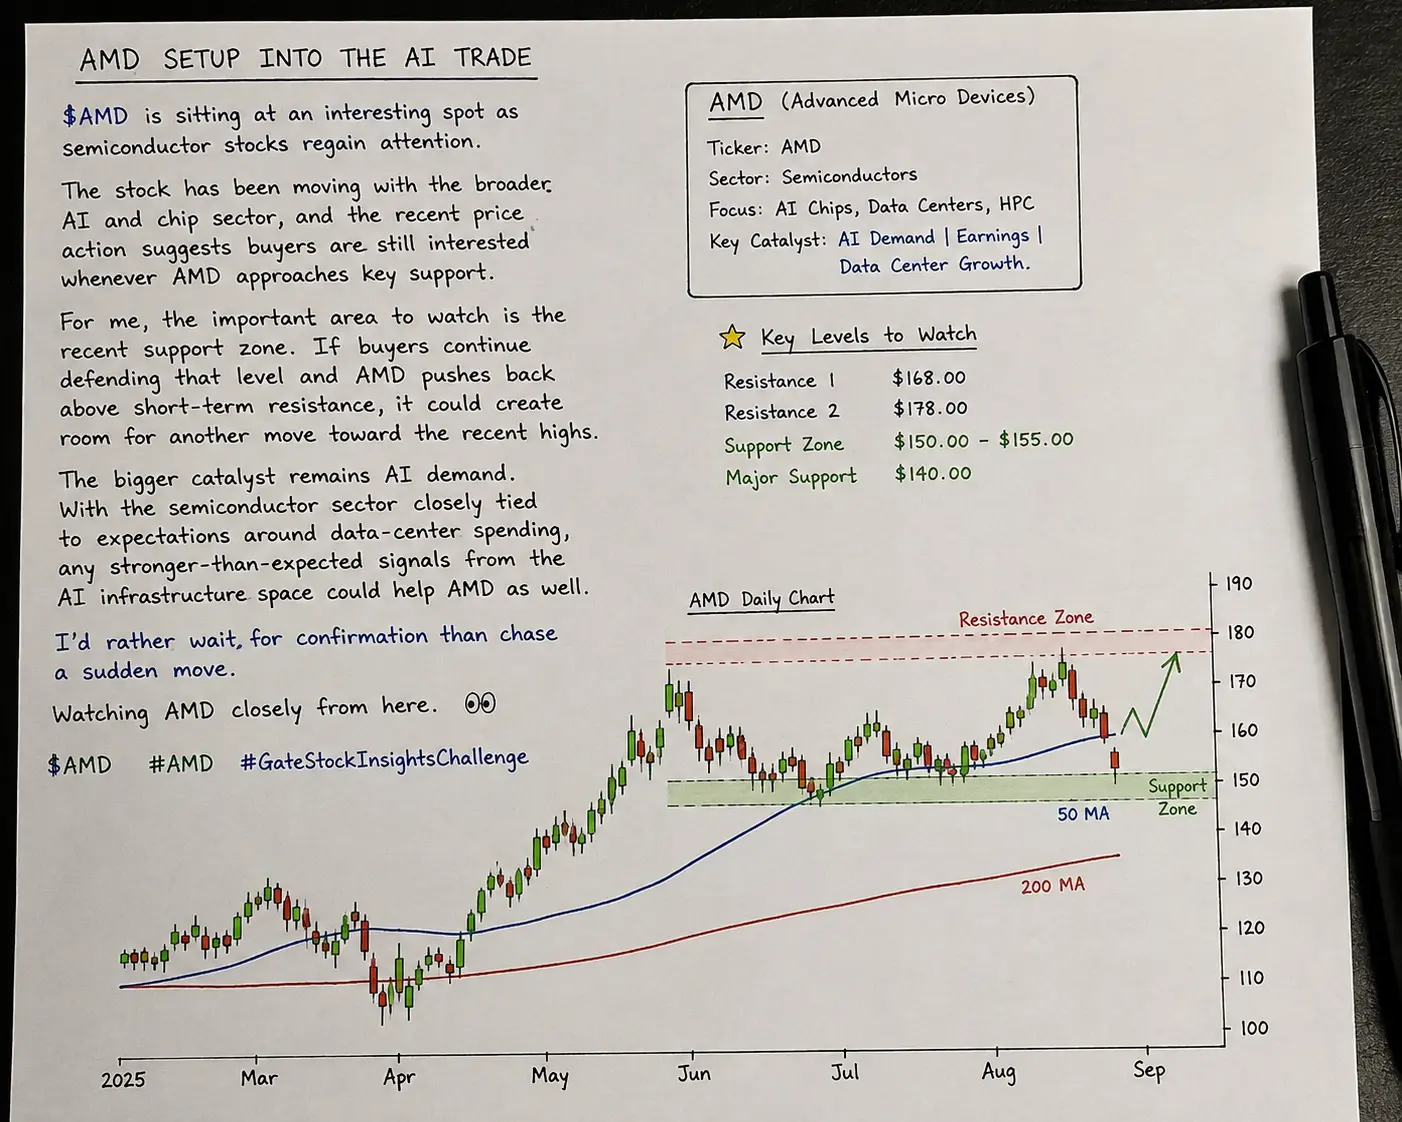 AMD SETUP INTO THE AI TRADE
$AMD is sitting at an interesting spot as
semiconductor stocks regain attention.
The stock has been moving with the broader
AI and chip sector, and the recent price
action suggests buyers are still interested
whenever AMD approaches key support.
For me, the important area to watch is the
recent support zone. If buyers continue
defending that level and AMD pushes back
above short-term resistance, it could create
room for another move toward the recent highs.
The bigger catalyst remains AI demand.
With the semiconductor sector closely tied
to expectations around data-center spending,
any stronger-than-expected signals from the
AI infrastructure space could help AMD as well.
I'd rather wait for confirmation than chase
a sudden move.
Watching AMD closely from here. 👀
$AMD #AMD #GateStockInsightsChallenge
AMD (Advanced Micro Devices)
Ticker: AMD
Sector: Semiconductors
Focus: AI Chips, Data Centers, HPC
Key Catalyst: AI Demand | Earnings |
Data Center Growth.
Key Levels to Watch
Resistance 1 $168.00
Resistance 2 $178.00
Support Zone $150.00 - $155.00
Major Support $140.00
AMD Daily Chart
Resistance Zone
Support
Zone
50 MA
200 MA
190
180
170
160
150
140
130
120
110
100
2025 Mar Apr May Jun Jul Aug Sep